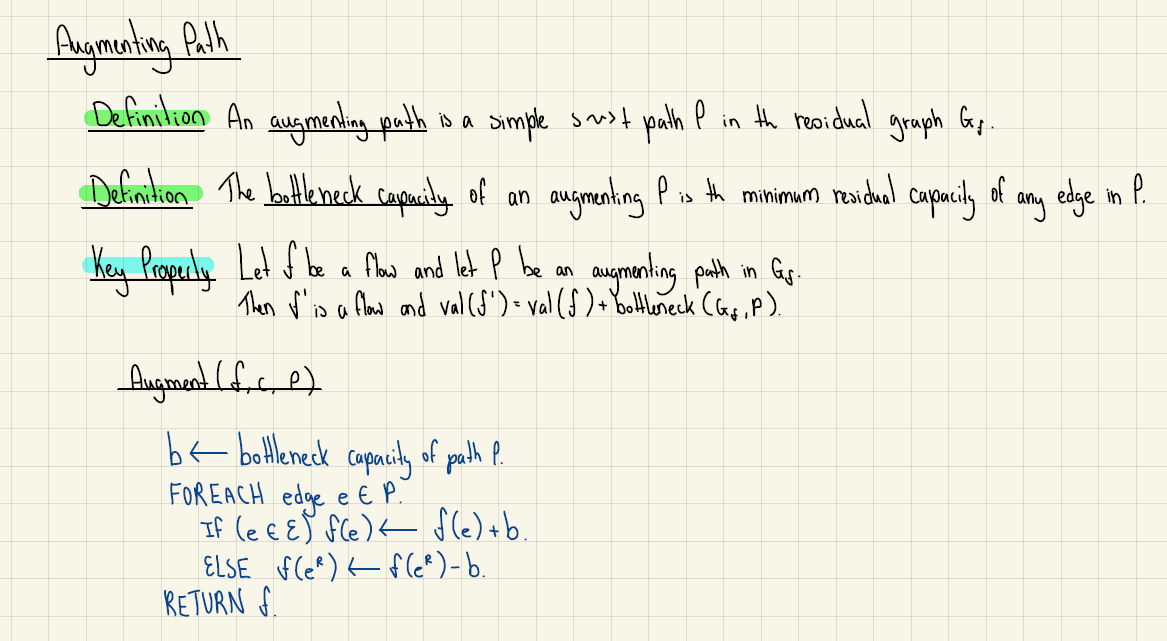 Augmenting Path
Definition An augmenting path is a simple s⤳t path P in th residual graph G_f.
Definition The bottleneck capacity of an augmenting P is th minimum residual capacity of any edge in P.
Key Property Let f be a flow and let P be an augmenting path in G_f.
Then f' is a flow and val(f') = val(f) + bottleneck (G_f, P).
Augment (f, c, P)
b ← bottleneck capacity of path P.
FOREACH edge e ∈ P.
If (e ∈ E) f(e) ← f(e) + b.
ELSE f(e^R) ← f(e^R) - b.
RETURN f.